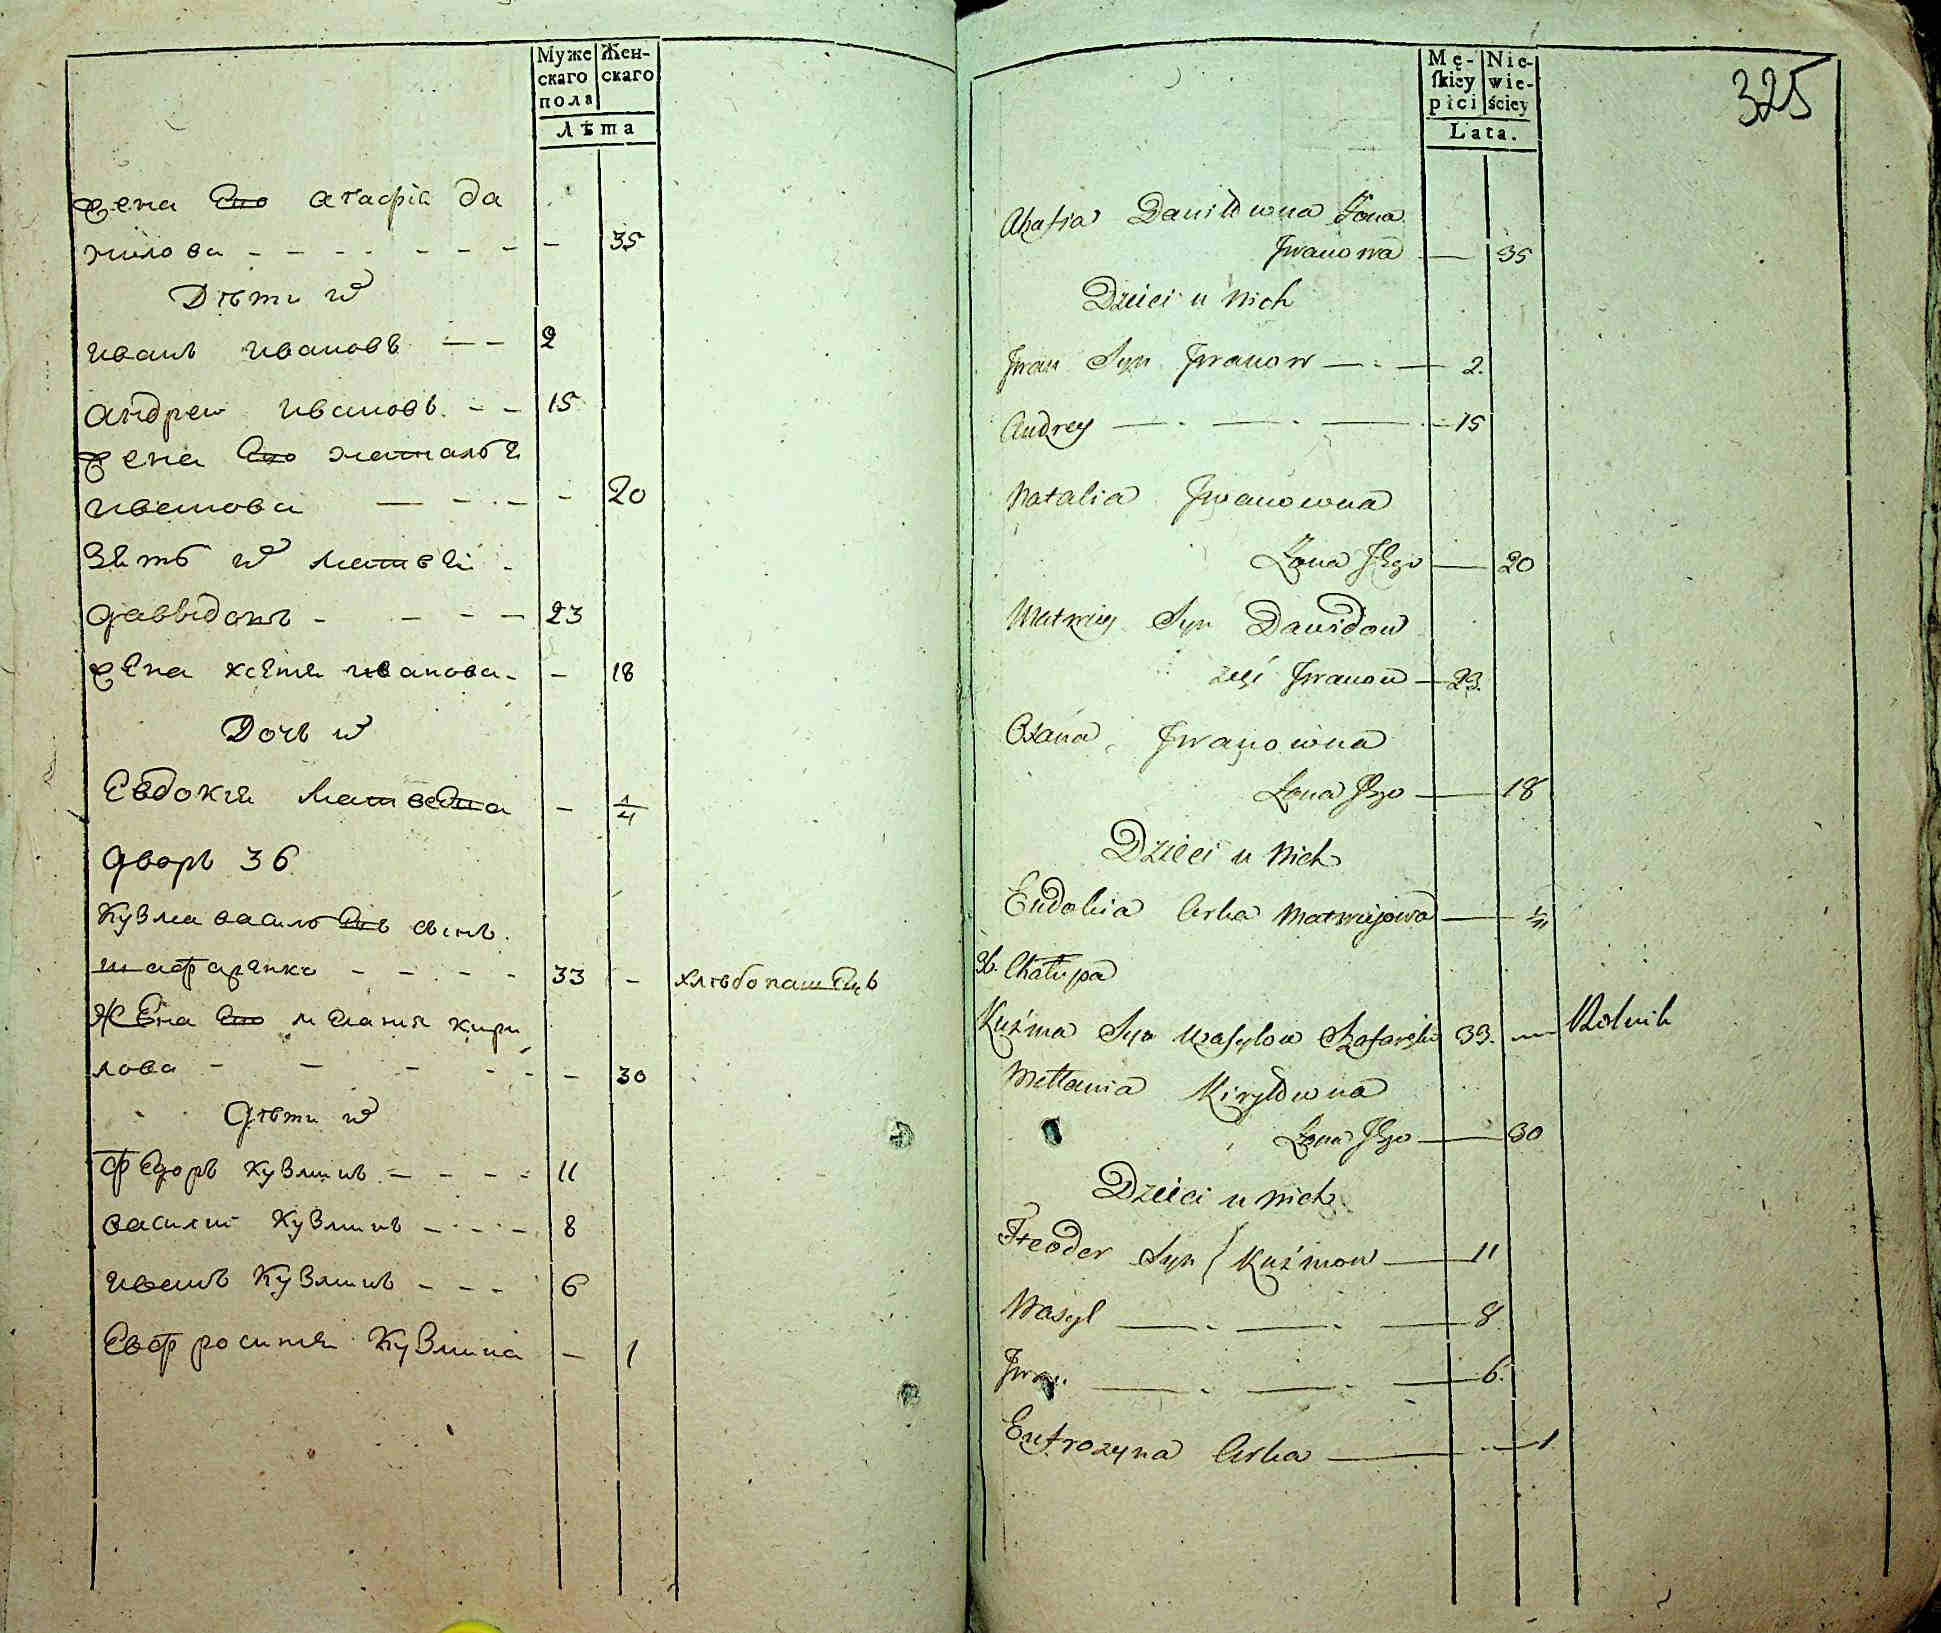 Муже скаго пола
Жен- скаго
Лѣта
жена Его агафіа да
нилова - - - - - - - 35
Дѣти их
иванъ ивановъ - - 2
андреи ивановъ - - 15
жена Его наталъя
иванова - - - - 20
Зять их матвеи -
давыдовъ - - - - 23
жена ксеня иванова - - 18
Дочь их
Евдокия матвеева - 1/4
дворъ 36
Кузма василъевъ сынъ
шафаренко - - - - 33 - хлѣбопашецъ
Жена Его мелания кири
лова - - - - - - 30
дѣти их
федоръ кузминъ - - - - 11
василии кузминъ - - - - 8
иванъ Кузминъ - - - 6
Евфросиния Кузмина - 1
325
Mę- ſkiey płci
Nie- wie- ściey
Lata.
Ahafia Daniłowna Żona
Jwanowa — 35
Dzieci u nich
Jwan Syn Jwanow — - — 2.
Andrey — - — - — 15
Natalia Jwanowna
Żona Jego — 20
Matwiey Syn Dawidow
zięć Jwanow — 23.
Oxana Jwanowna
Żona Jego — 18
Dzieci u nich
Eudokia Corka Matwiejowa — 1/4
36. Chałupa
Kuźma Syn Wasylow Szafareńko 33. — Rolnik
Mełania Kiryłowna
Żona Jego — 30
Dzieci u nich
Fteoder Syn ( Kuźmow — 11
Wasyl — - — - — 8
Jwan — - — - — 6.
Eufrozyna Corka — - — 1